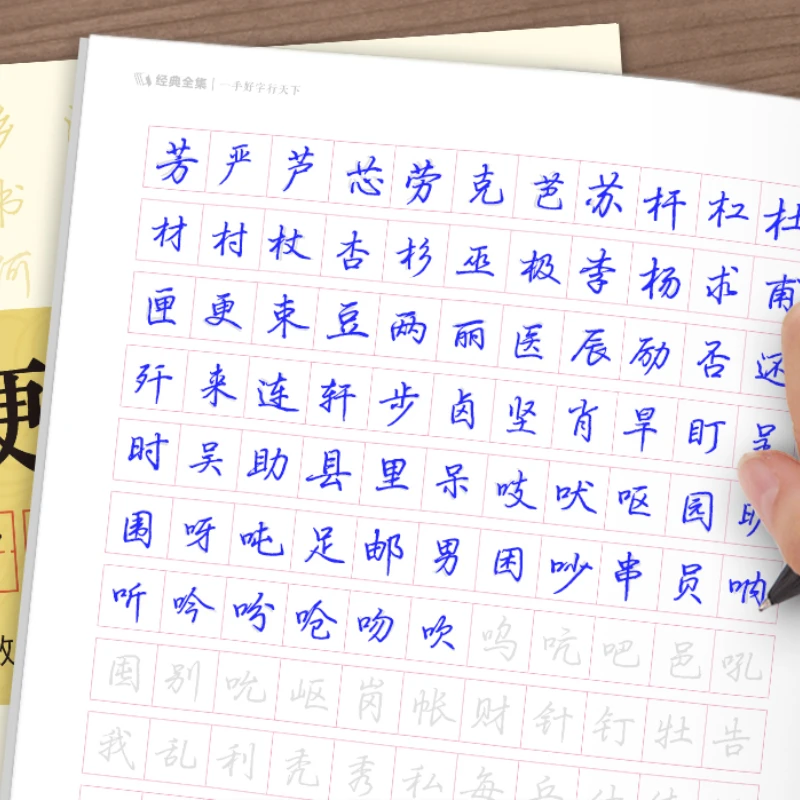 经典全集 | 一手好字行天下
芳严芦芯劳克芭苏杆杠杜
材村杖杏杉巫极李杨求甫
匣更束豆两丽医辰励否还
歼来连轩步卤坚肖旱盯呈
时吴助县里呆吱吠呕园
围呀吨足邮男困吵串员呐
听吟吩呛吻吹呜吭吧邑吼
囤别吮岖岗帐财针钉牡告
我乱利秃秀私每兵
乡
书
何
硬